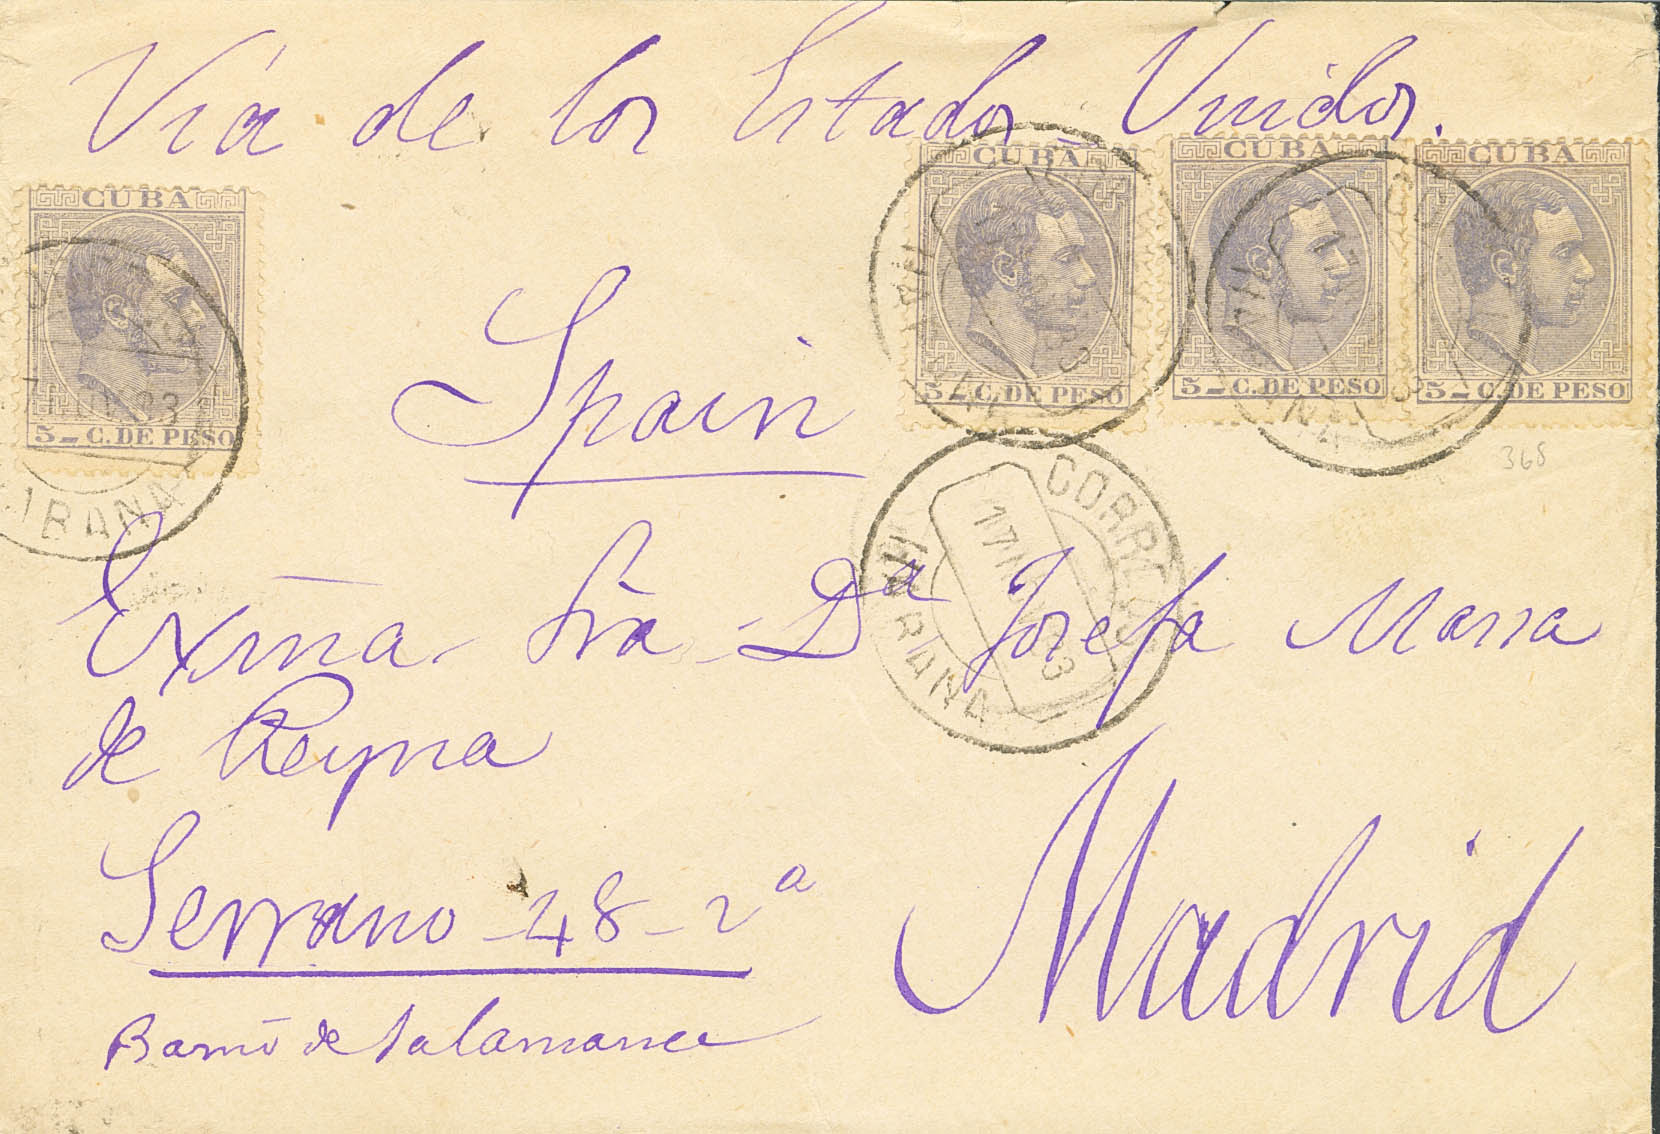 Via de los Estados Unidos.
CUBA
5 - C. DE PESO
CUBA
5 - C. DE PESO
CUBA
5 - C. DE PESO
CUBA
5 - C. DE PESO
368
IBANA
Spain
CORREOS
HABANA
Exma Sra Dª Josefa Maria
de Reyna
Serrano - 48 - 2ª
Madrid
Barrio de Salamanca